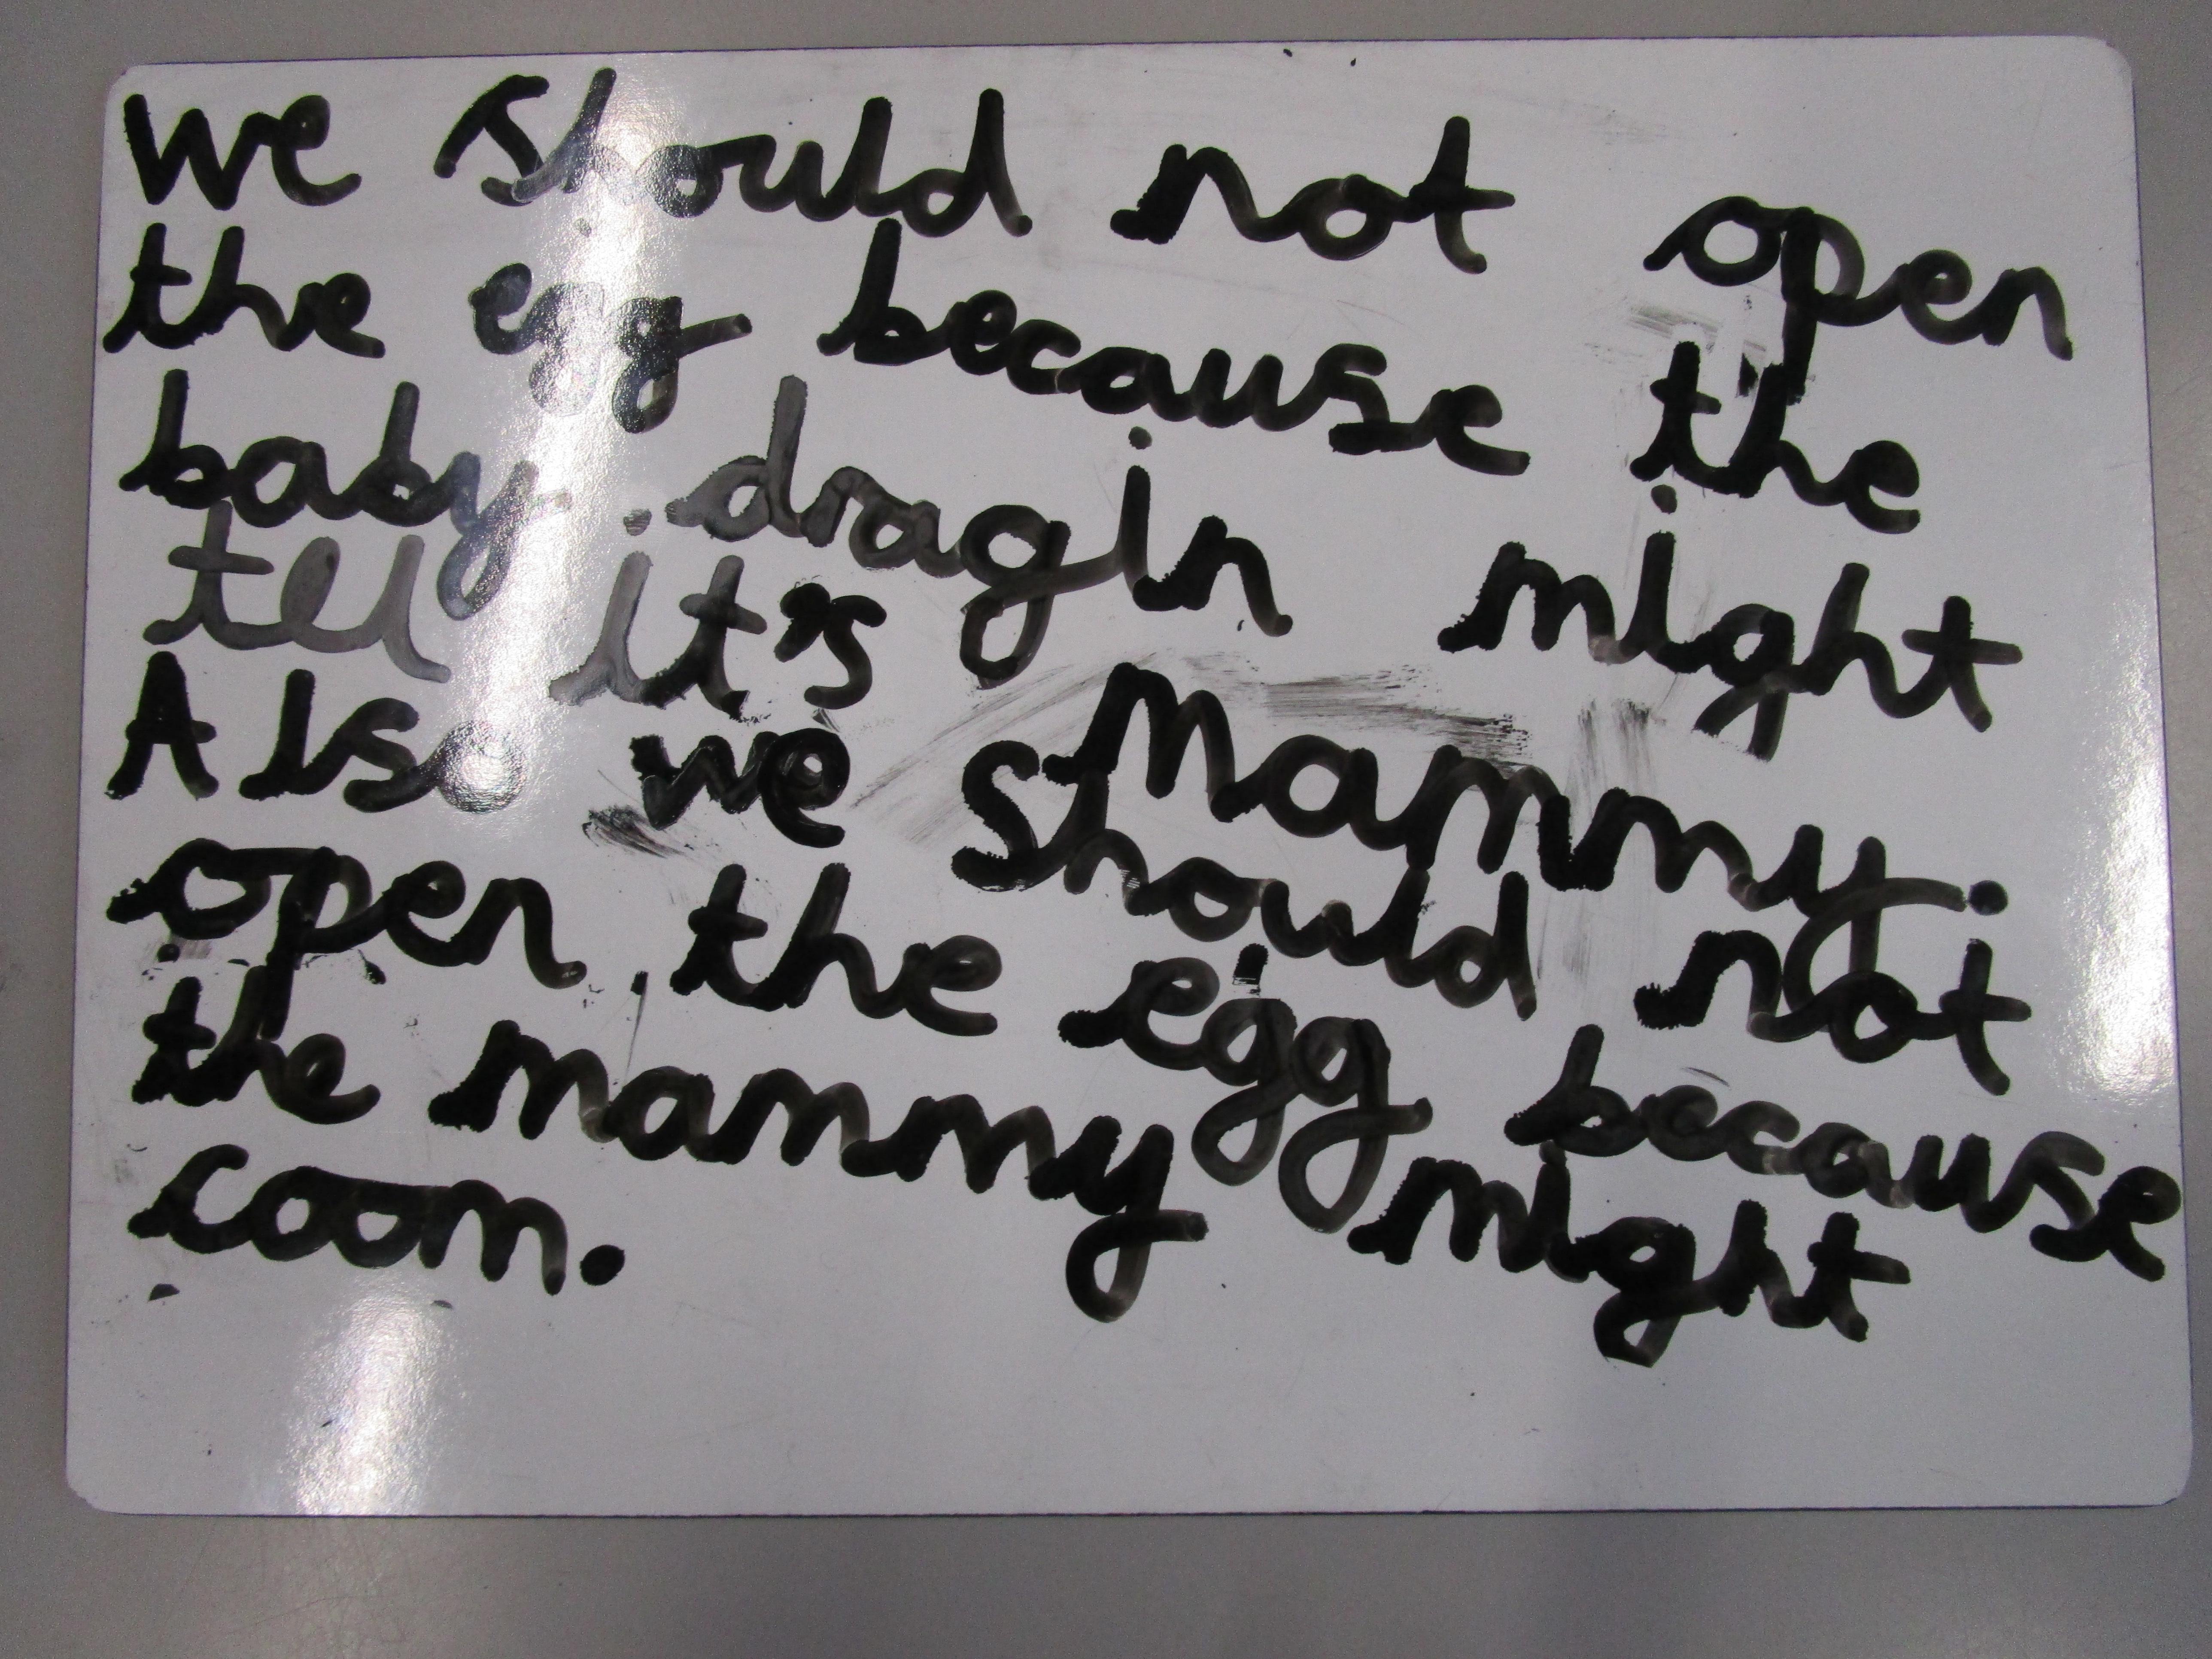 we should not open
the egg because the
baby dragin might
tell it's Mammy.
Also we should not
open the egg because
the mammy might
coom.